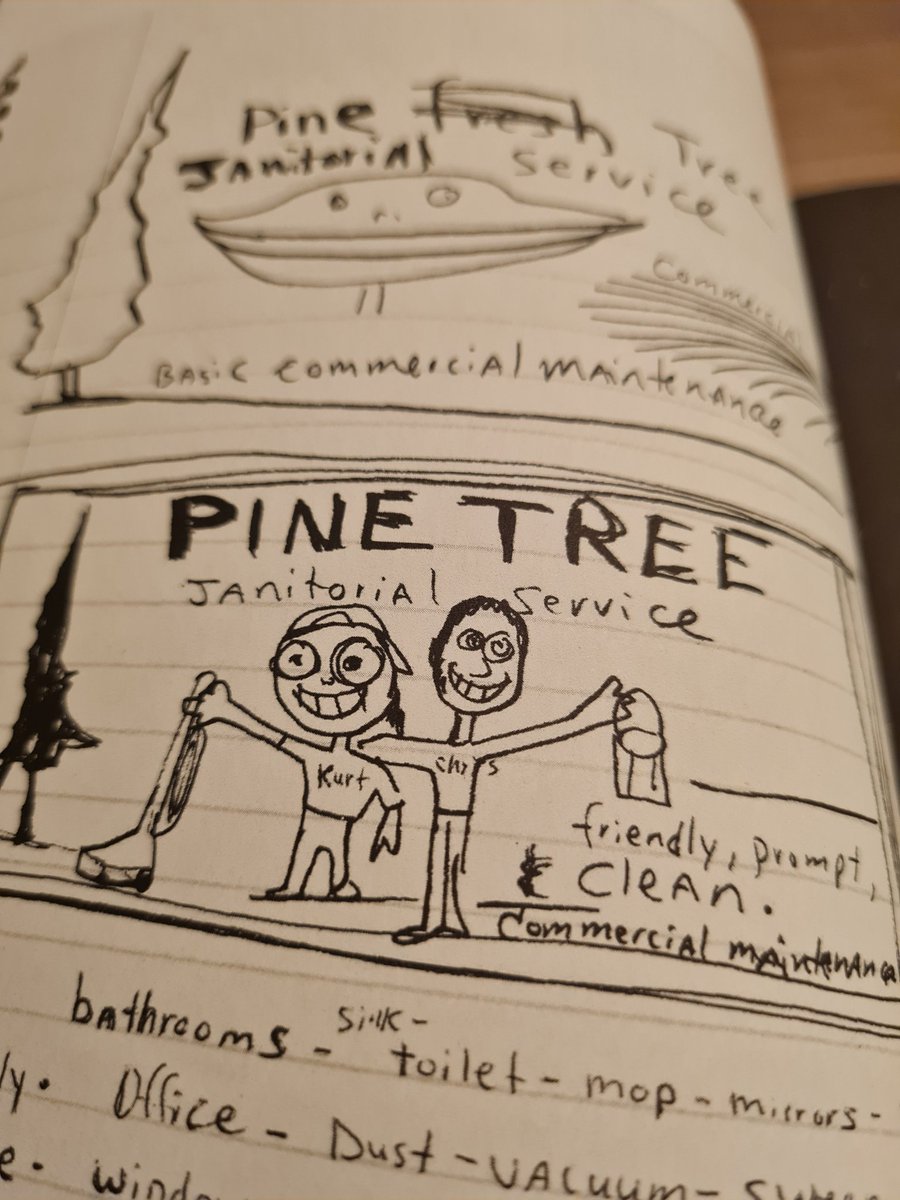 Pine fresh Tree
JANitoriAl Service
Commercial
BASiC commerciAl mAintenANce
PINE TREE
JANitoriAl Service
Kurt
Chris
friendly, prompt,
& CleAN.
CommerciAl mAintenANce
bAthrooms - Sink -
toilet - mop - mirrors -
ly. Office - Dust - VACuum -
e.